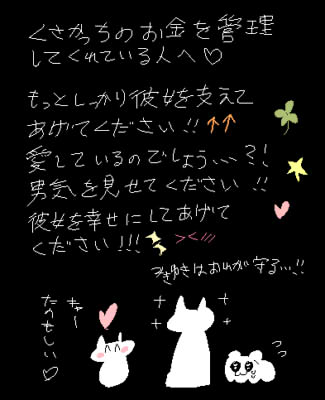 くさかっちのお金を管理
してくれている人へ♡
もっとしっかり彼女を支えて
あげてください!!↑↑
愛しているのでしょう、、、?!
男気を見せてください!!
彼女を幸せにしてあげて
ください!!!
><///
はおれが守る...!!
キャー
たのもしい♡